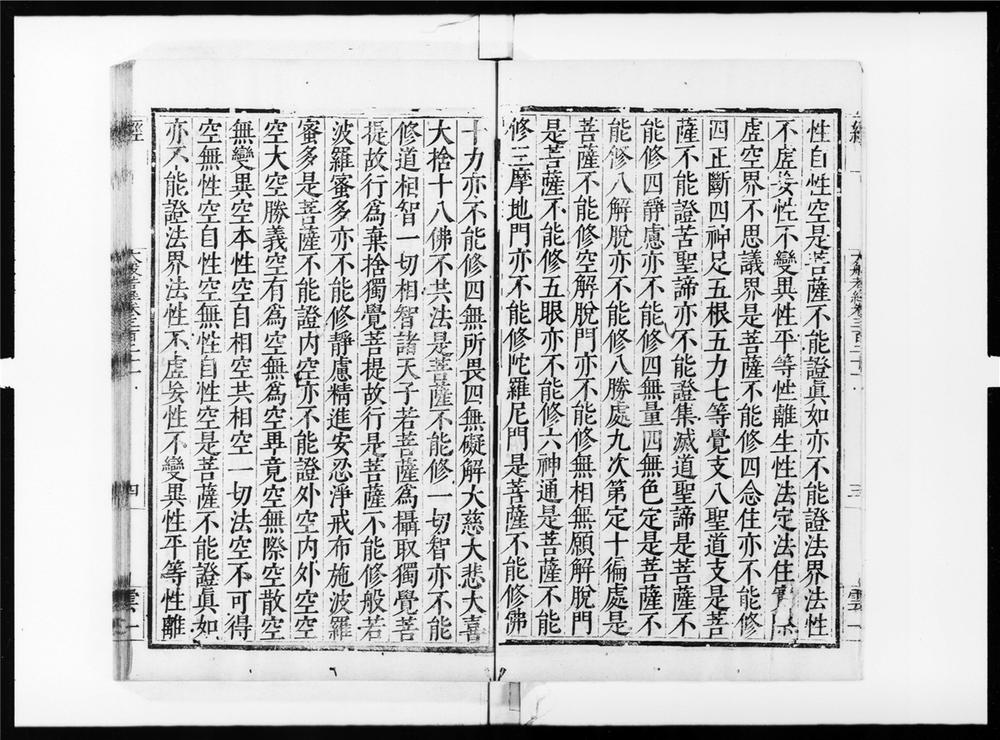 經
大般若經卷三百二十一
三
雲一
性自性空是菩薩不能證眞如亦不能證法界法性
不虛妄性不變異性平等性離生性法定法住實際
虛空界不思議界是菩薩不能修四念住亦不能修
四正斷四神足五根五力七等覺支八聖道支是菩
薩不能證苦聖諦亦不能證集滅道聖諦是菩薩不
能修四靜慮亦不能修四無量四無色定是菩薩不
能修八解脫亦不能修八勝處九次第定十徧處是
菩薩不能修空解脫門亦不能修無相無願解脫門
是菩薩不能修五眼亦不能修六神通是菩薩不能
修三摩地門亦不能修陀羅尼門是菩薩不能修佛
十力亦不能修四無所畏四無礙解大慈大悲大喜
大捨十八佛不共法是菩薩不能修一切智亦不能
修道相智一切相智諸天子若菩薩爲攝取獨覺菩
提故行爲棄捨獨覺菩提故行是菩薩不能修般若
波羅蜜多亦不能修靜慮精進安忍淨戒布施波羅
蜜多是菩薩不能證內空亦不能證外空內外空空
空大空勝義空有爲空無爲空畢竟空無際空散空
無變異空本性空自相空共相空一切法空不可得
空無性空自性空無性自性空是菩薩不能證眞如
亦不能證法界法性不虛妄性不變異性平等性離
經
大般若經卷三百二十一
四
雲一